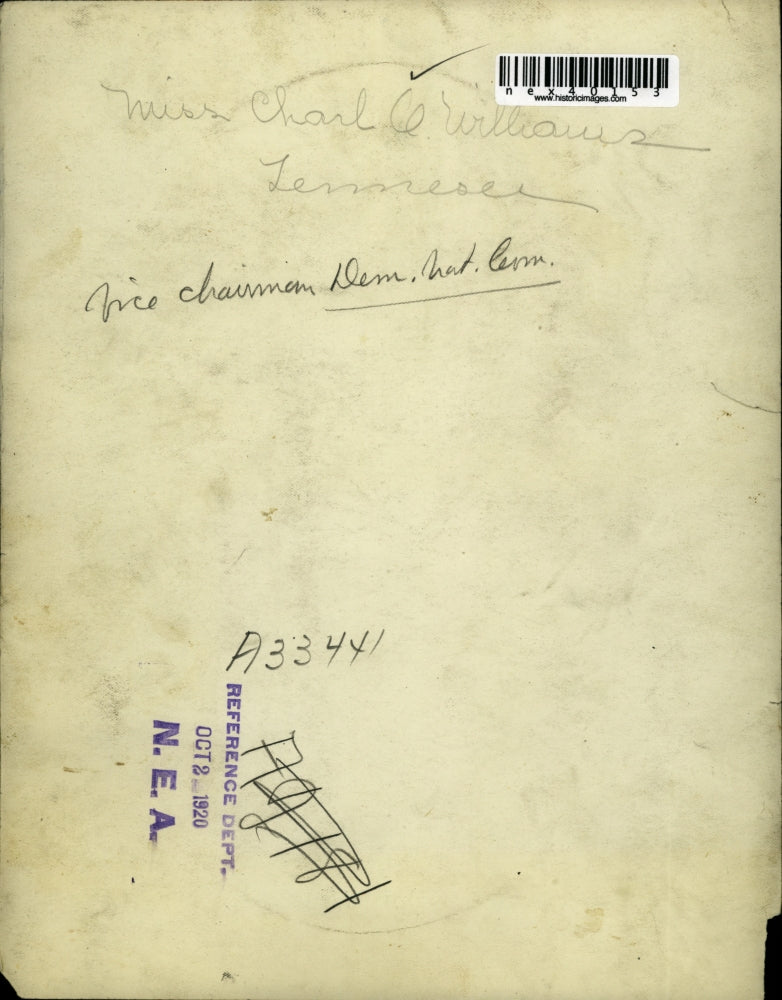 nex40153
www.historicimages.com
Miss Charl O Williams
Tennessee
Vice chairman Dem. Nat. Com.
A33441
REFERENCE DEPT.
OCT 2 1920
N. E. A.